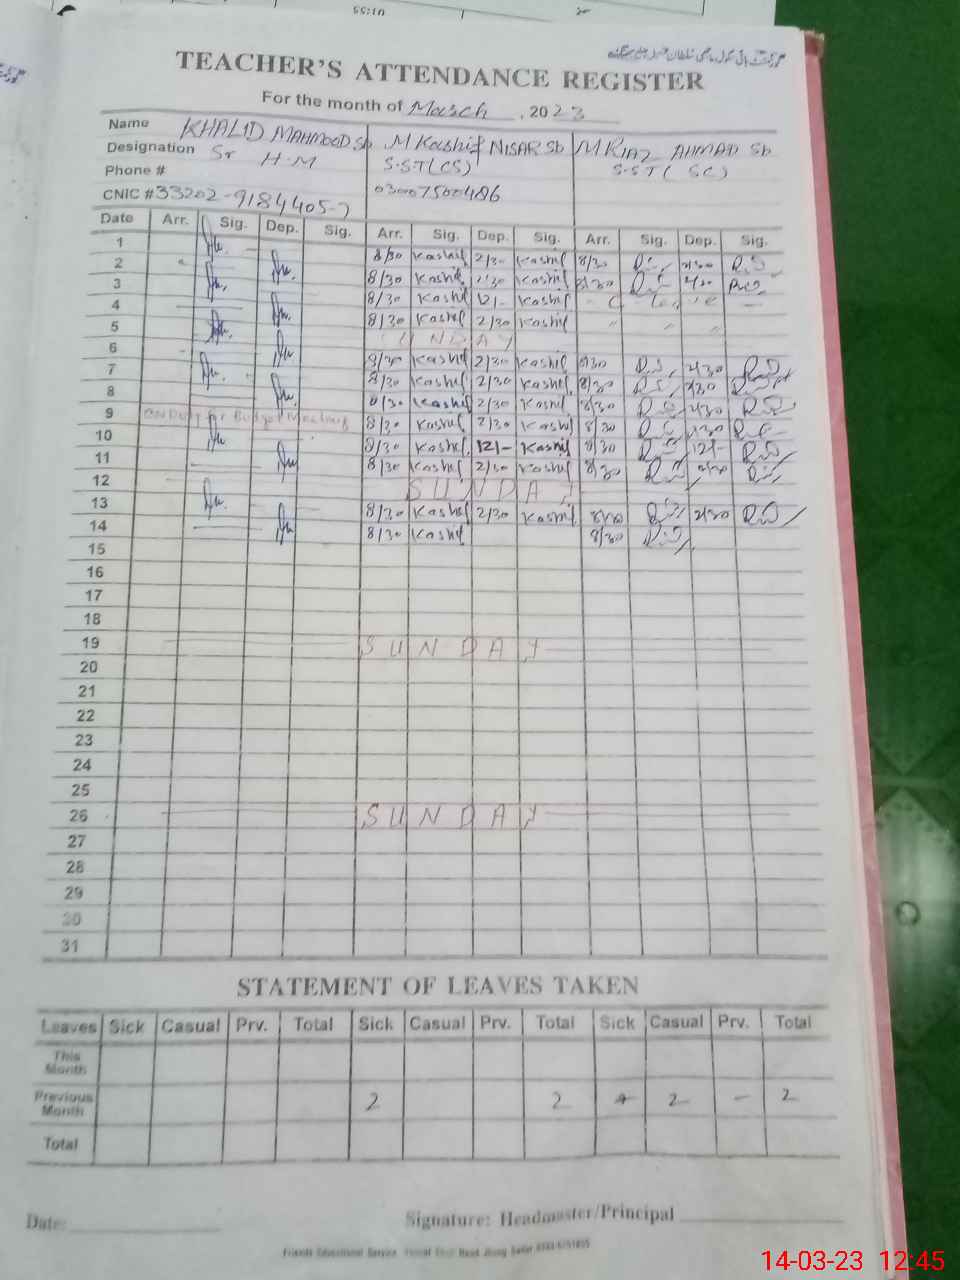 01:55
TEACHER'S ATTENDANCE REGISTER
For the month of March, 2023
Name KHALID MAHMOOD Sb M Kashif NISAR Sb M RIAZ AHMAD Sb
Designation Sr H.M S.ST(CS) S.ST( SC)
Phone # 03007500486
CNIC # 33202-9184405-7
Date Arr. Sig. Dep. Sig. Arr. Sig. Dep. Sig. Arr. Sig. Dep. Sig.
1 8/30 Kashif 2/30 Kashif 8/30 2/30
2 8/30 Kashif 2/30 Kashif 8/30 2/30
3 8/30 Kashif 12/- Kashif
4 8/30 Kashif 2/30 Kashif
5 SUNDAY
6 8/30 Kashif 2/30 Kashif 8/30 2/30
7 8/30 Kashif 2/30 Kashif 8/30 2/30
8 8/30 Kashif 2/30 Kashif 8/30 2/30
9 on Duty for Budget Meeting 8/30 Kashif 2/30 Kashif 8/30 2/30
10 8/30 Kashif 12/- Kashif 8/30 12/-
11 8/30 Kashif 2/30 Kashif 8/30 2/30
12 SUNDAY
13 8/30 Kashif 2/30 Kashif 8/30 2/30
14 8/30 Kashif 8/30
15
16
17
18
19 SUNDAY
20
21
22
23
24
25
26 SUNDAY
27
28
29
30
31
STATEMENT OF LEAVES TAKEN
Leaves Sick Casual Prv. Total Sick Casual Prv. Total Sick Casual Prv. Total
This Month
Previous Month 2 2 2 - 2
Total
Date: Signature: Headmaster/Principal
14-03-23 12:45